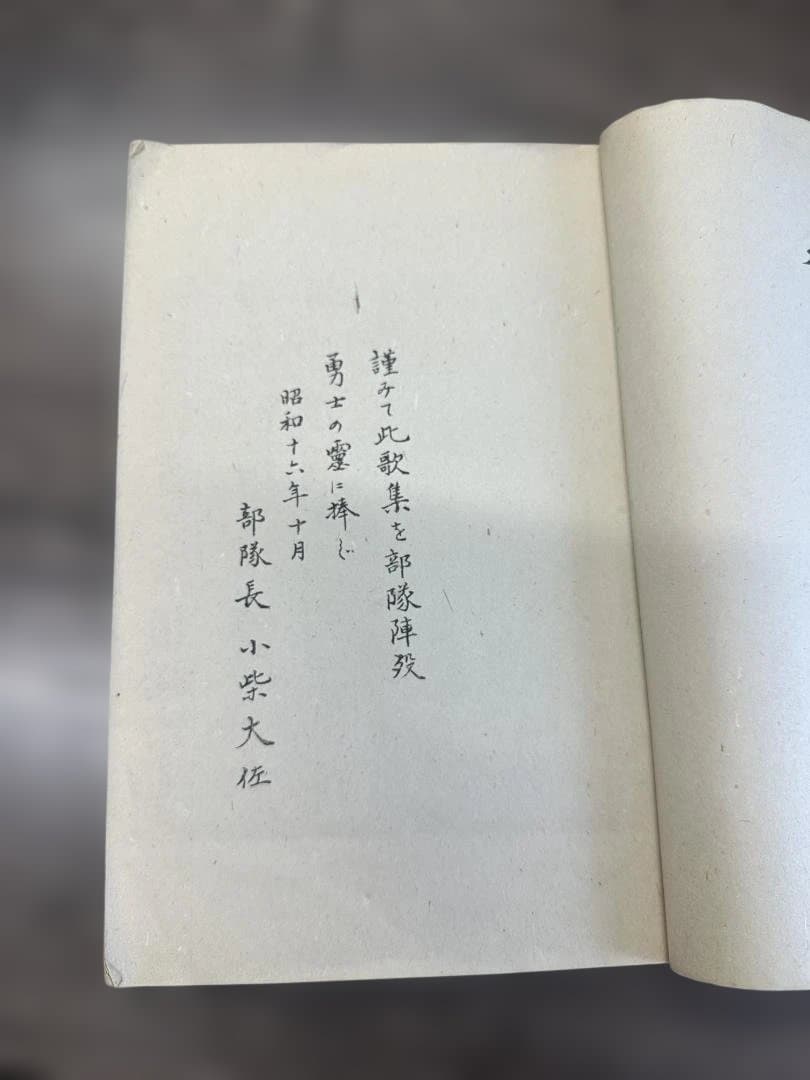 謹みて此歌集を部隊陣歿
勇士の靈に捧ぐ
昭和十六年十月
部隊長 小柴大佐